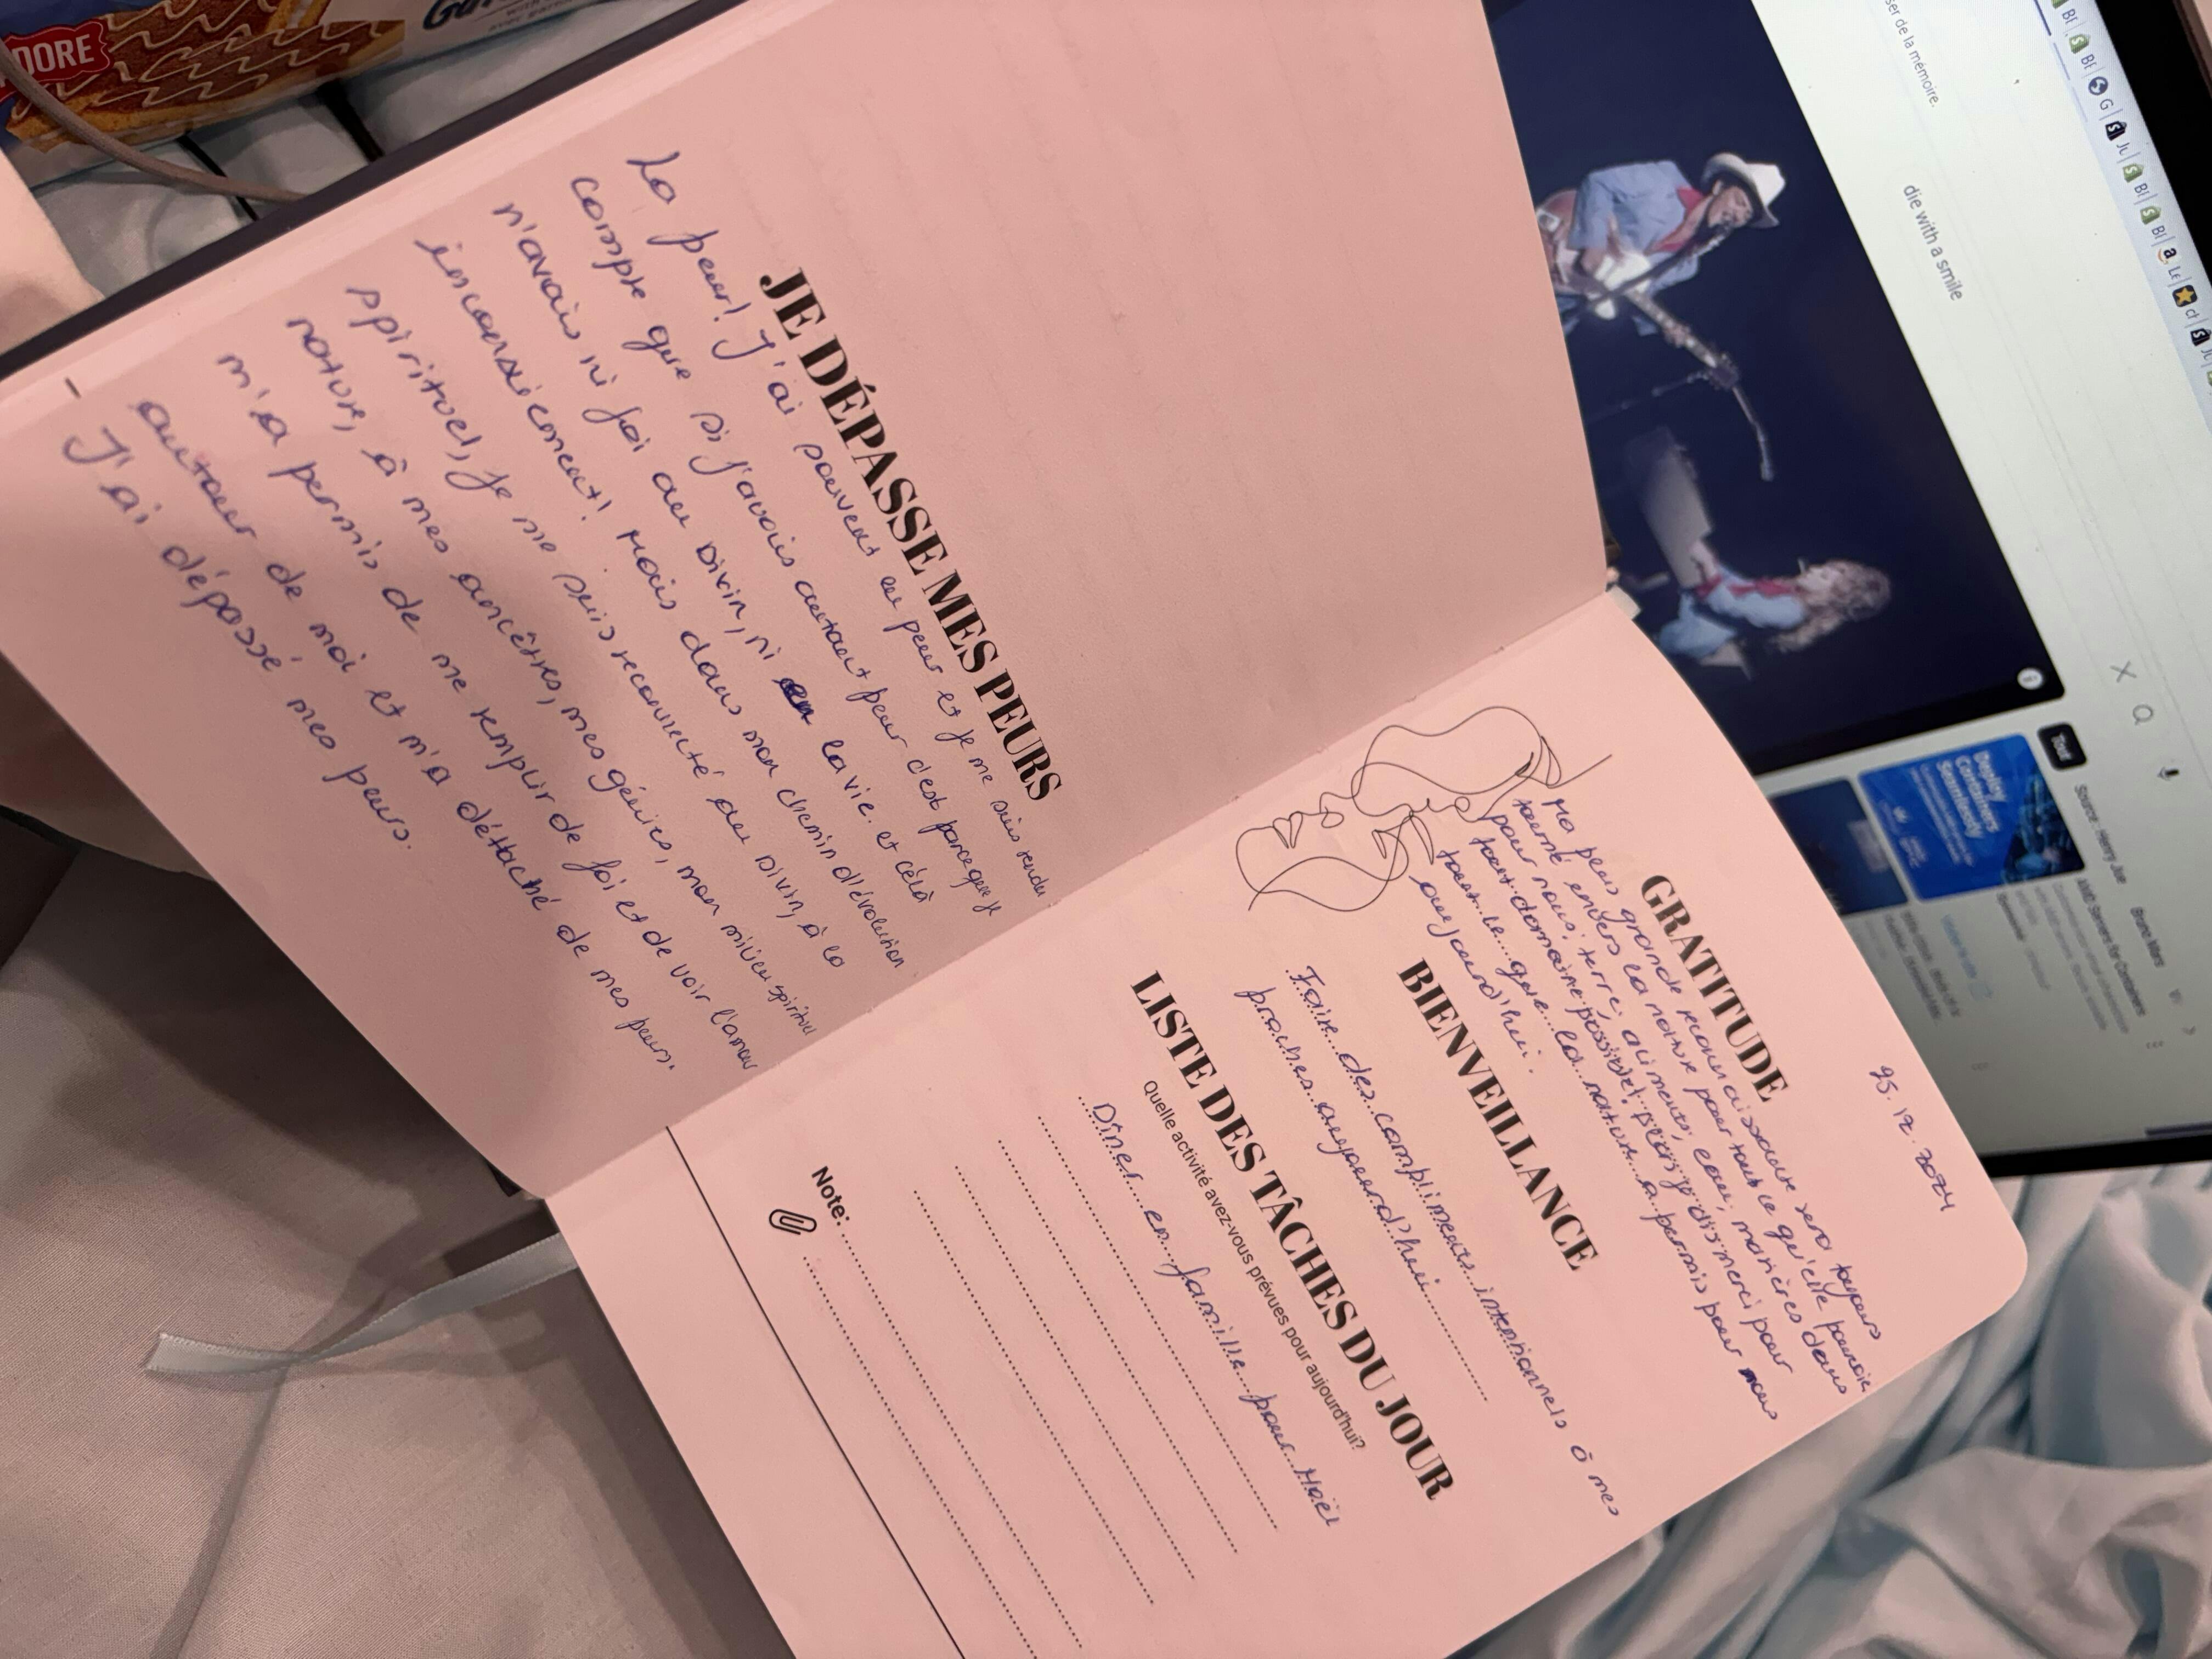 25.12.2024
GRATITUDE
Ma plus grande reconnaissance sera toujours
tourné envers la nature pour tout ce qu'elle pourvoie
pour nous; terre, aliments, eau, manières dans
tout domaine possible! je dis merci pour
tout ce que la nature a permis pour nous
aujourd'hui.
BIENVEILLANCE
Faire des compliments intentionnels à mes
proches aujourd'hui
LISTE DES TÂCHES DU JOUR
Quelle activité avez-vous prévues pour aujourd'hui?
Dîner en famille pour Noël
Note:
JE DÉPASSE MES PEURS
La peur! J'ai souvent eu peur et je me suis rendu
compte que si j'avais autant peur c'est parceque je
n'avais ni foi au Divin, ni en la vie. et célà
inconsciement! Mais dans mon chemin d'évolution
spirituel, je me suis reconnecté au Divin, à la
nature, à mes ancêtres, mes génies, mon milieu spirituel
m'a permis de me remplir de foi et de voir l'amour
autour de moi et m'a détaché de mes peurs.
J'ai dépassé mes peurs.
DORE
ser de la mémoire.
die with a smile
Tout
Source : Henry Jue
Bruno Mars
AMD Servers for Containers
Deploy
Containers
Seamlessly